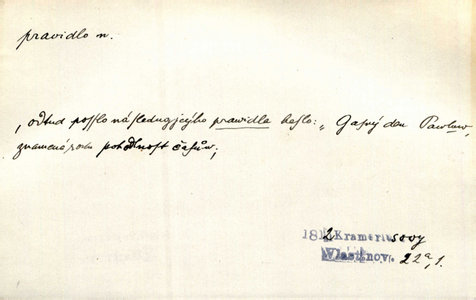 pravidlo n.
„odtud posslo následugjcýho prawidla heslo: „Gasný den Pawlůw,
znamená roku pohodlnost časůw„
182 Krameriusovy
Vlastnov. 22a, 1.